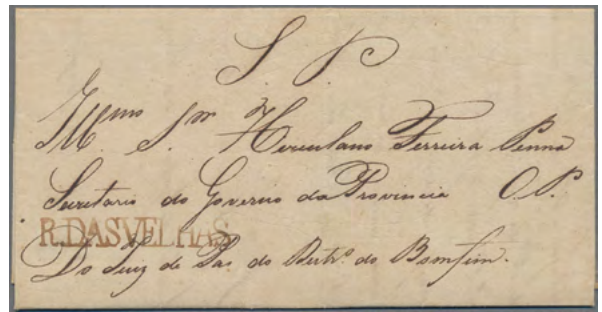 S. P.
Illmo. Snr. Herculano Ferreira Penna
Secretario do Governo da Provincia O. P.
R.DASVELHAS
Do Juiz de Paz do Distro. do Bomfim.